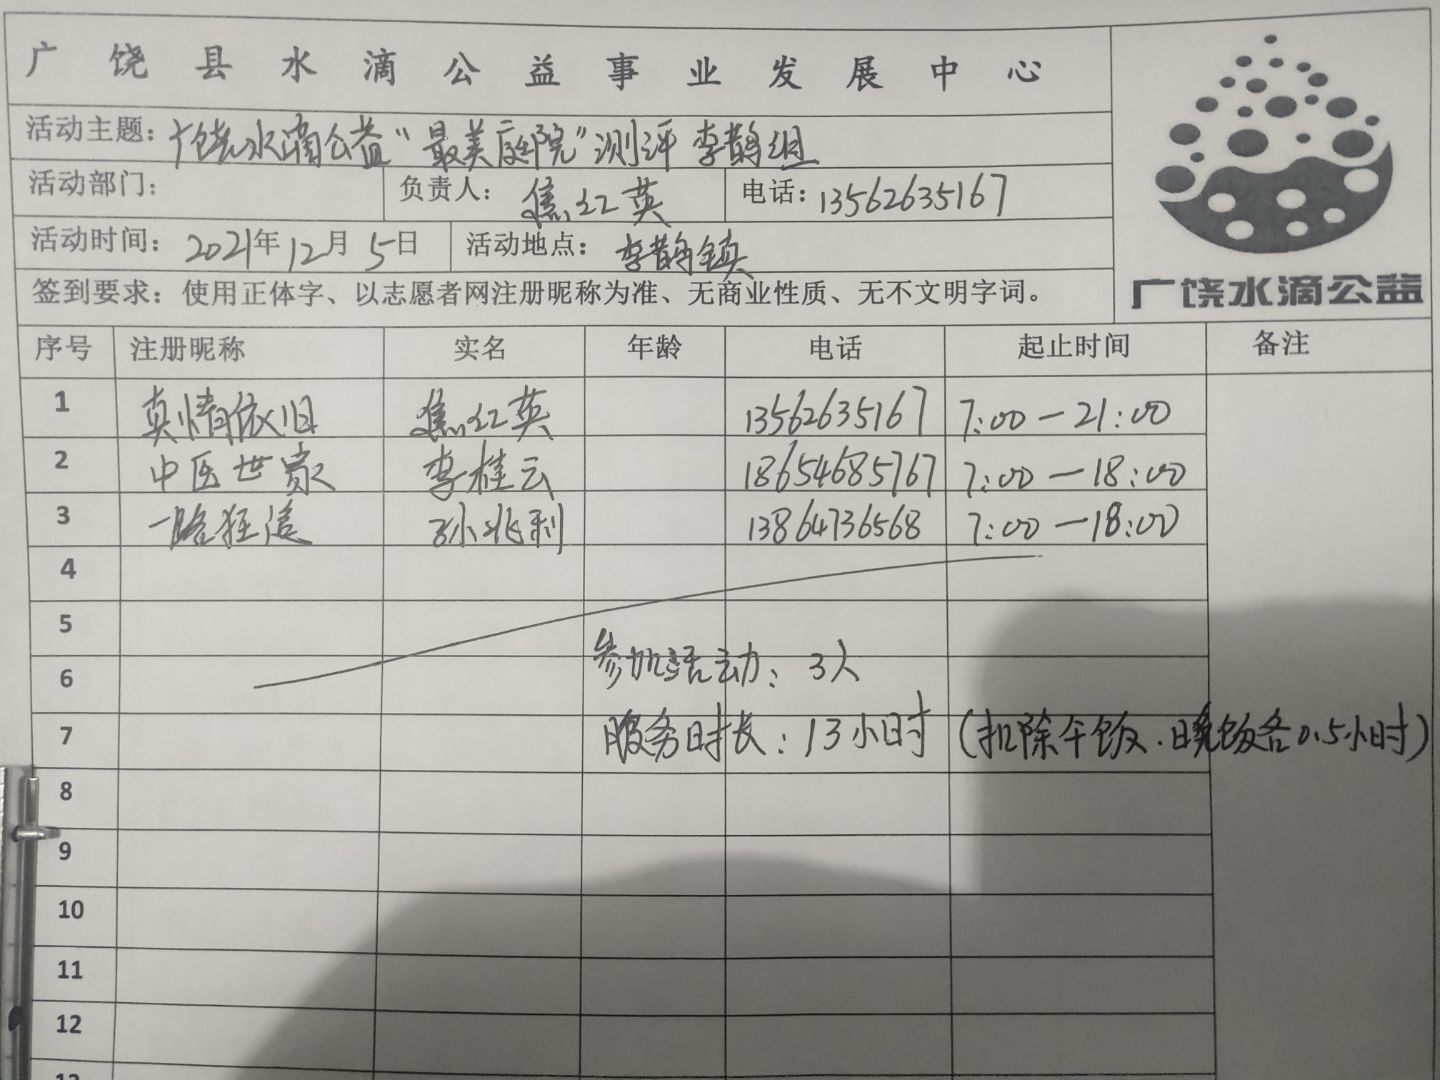 广饶县水滴公益事业发展中心
活动主题：广饶水滴公益"最美庭院"测评 李鹊组
活动部门： 负责人：焦红英 电话：13562635167
活动时间：2021年12月5日 活动地点：李鹊镇
签到要求：使用正体字、以志愿者网注册昵称为准、无商业性质、无不文明字词。
广饶水滴公益
序号 注册昵称 实名 年龄 电话 起止时间 备注
1 真情依旧 焦红英 13562635167 7:00—21:00
2 中医世家 李桂云 18654685767 7:00—18:00
3 一路狂追 孙兆利 13864736568 7:00—18:00
4
5
参加活动：3人
6
7 服务时长：13小时（扣除午饭.晚饭各0.5小时）
8
9
10
11
12